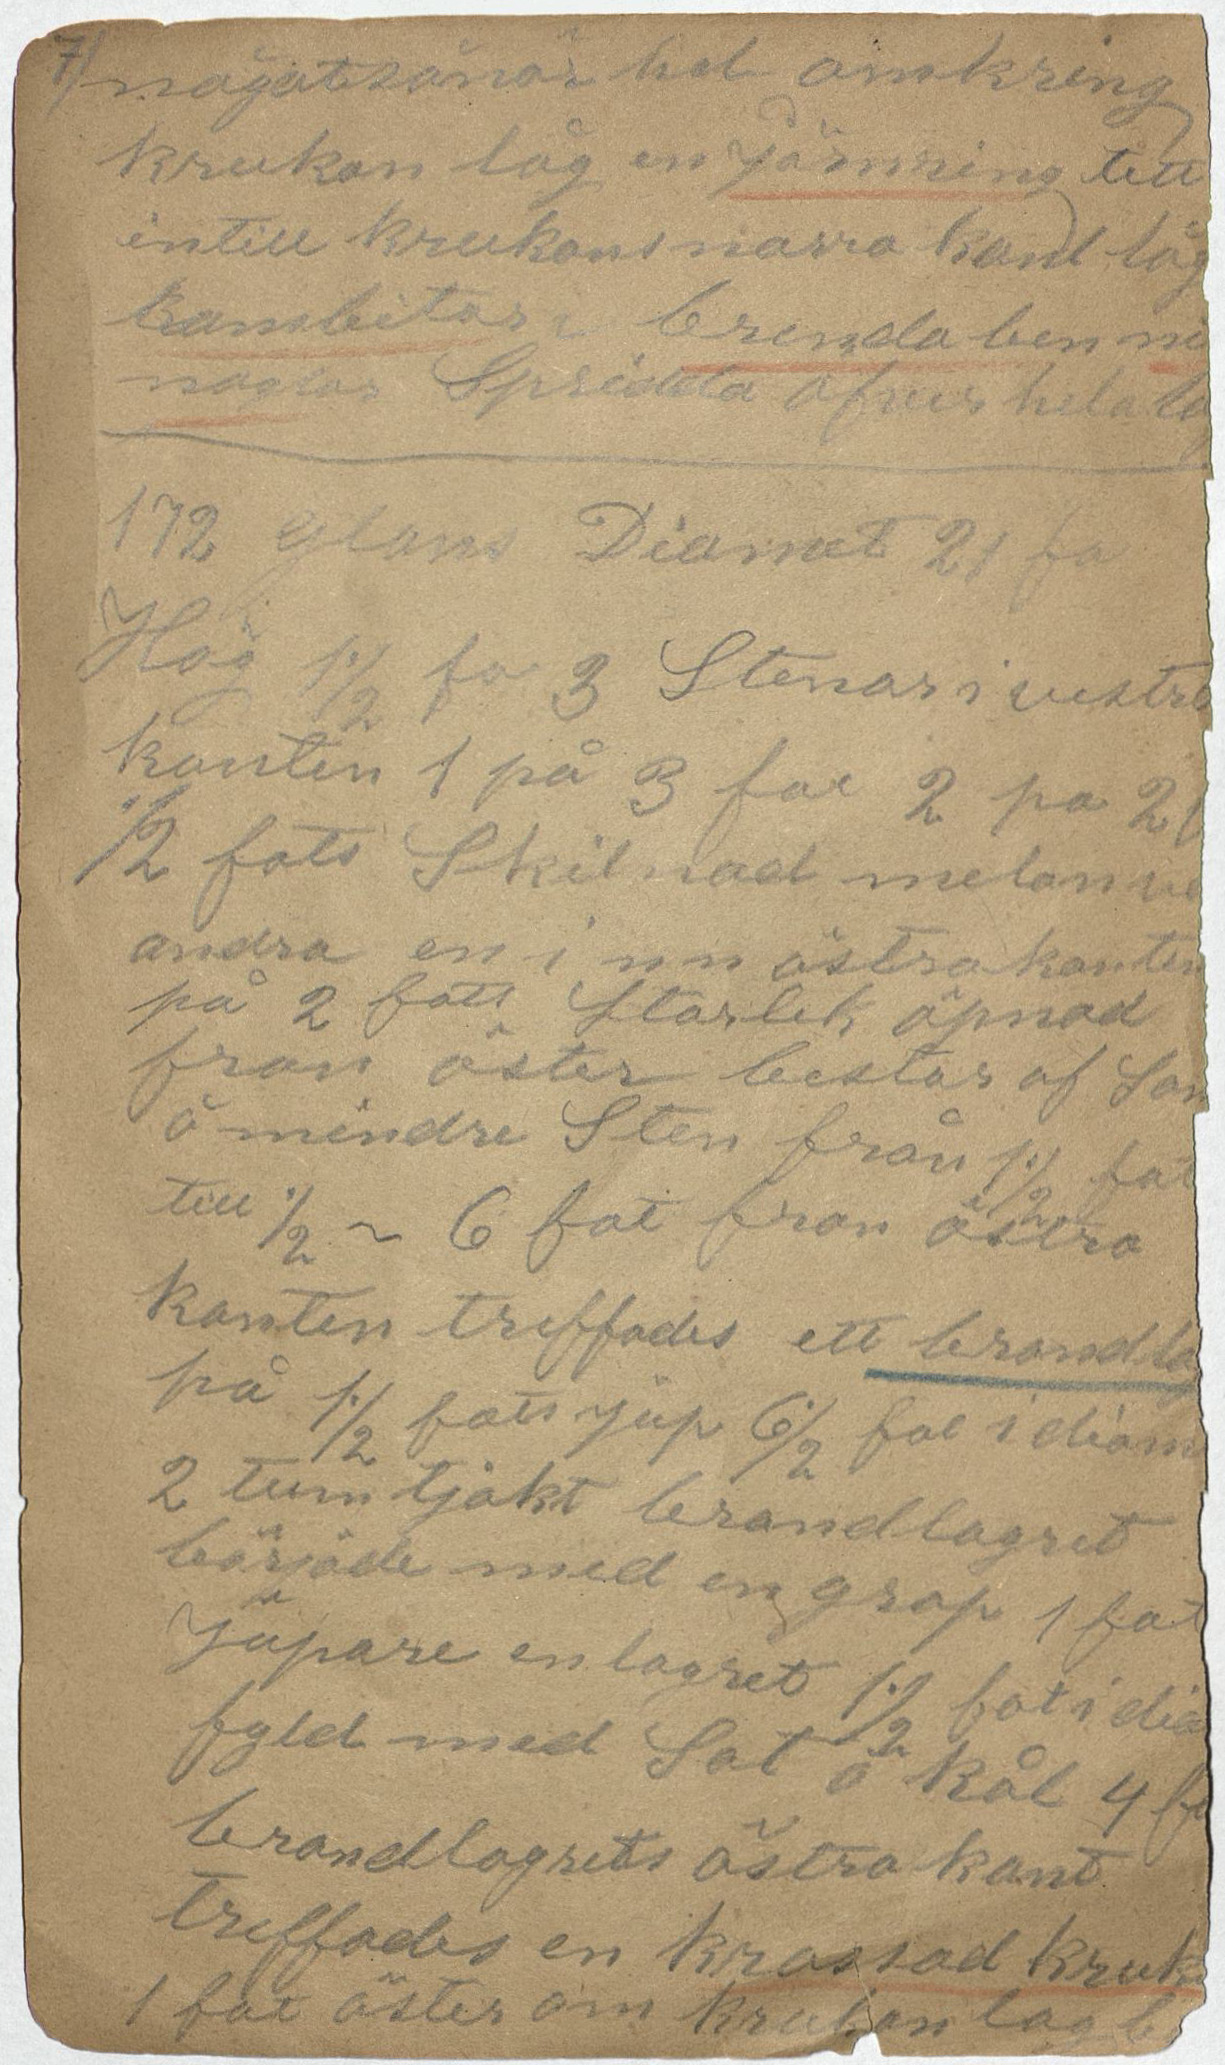 7/ någotsånär hel omkring
krukan låg en järnring tett
intill krukans narra kand låg
kambitar brenda ben
naglar Spridda öfver hela
172 glans Diamet 21 fo
Hög 1 1/2 fo 3 Stenar i vestra
kanten 1 på 3 fot 2 pa 2
1/2 fots Skilnad melan
andra en i nn östra kanten
på 2 fots Storlek öpnad
från öster bestar af San
å mindre Sten från 1 1/2 fot
till 1/2 ~ 6 fot fron östra
kanten treffades ett brandla
på 1 1/2 fots jup 6 1/2 fot i diam
2 tum tjokt brandlagret
började med en grop 1 fot
jupare en lagret 1 1/2 fot i dia
fyld med Sot å kål 4 fo
brandlagrets östra kant
treffades en krossad kruk
1 fot öster om krukan lag b